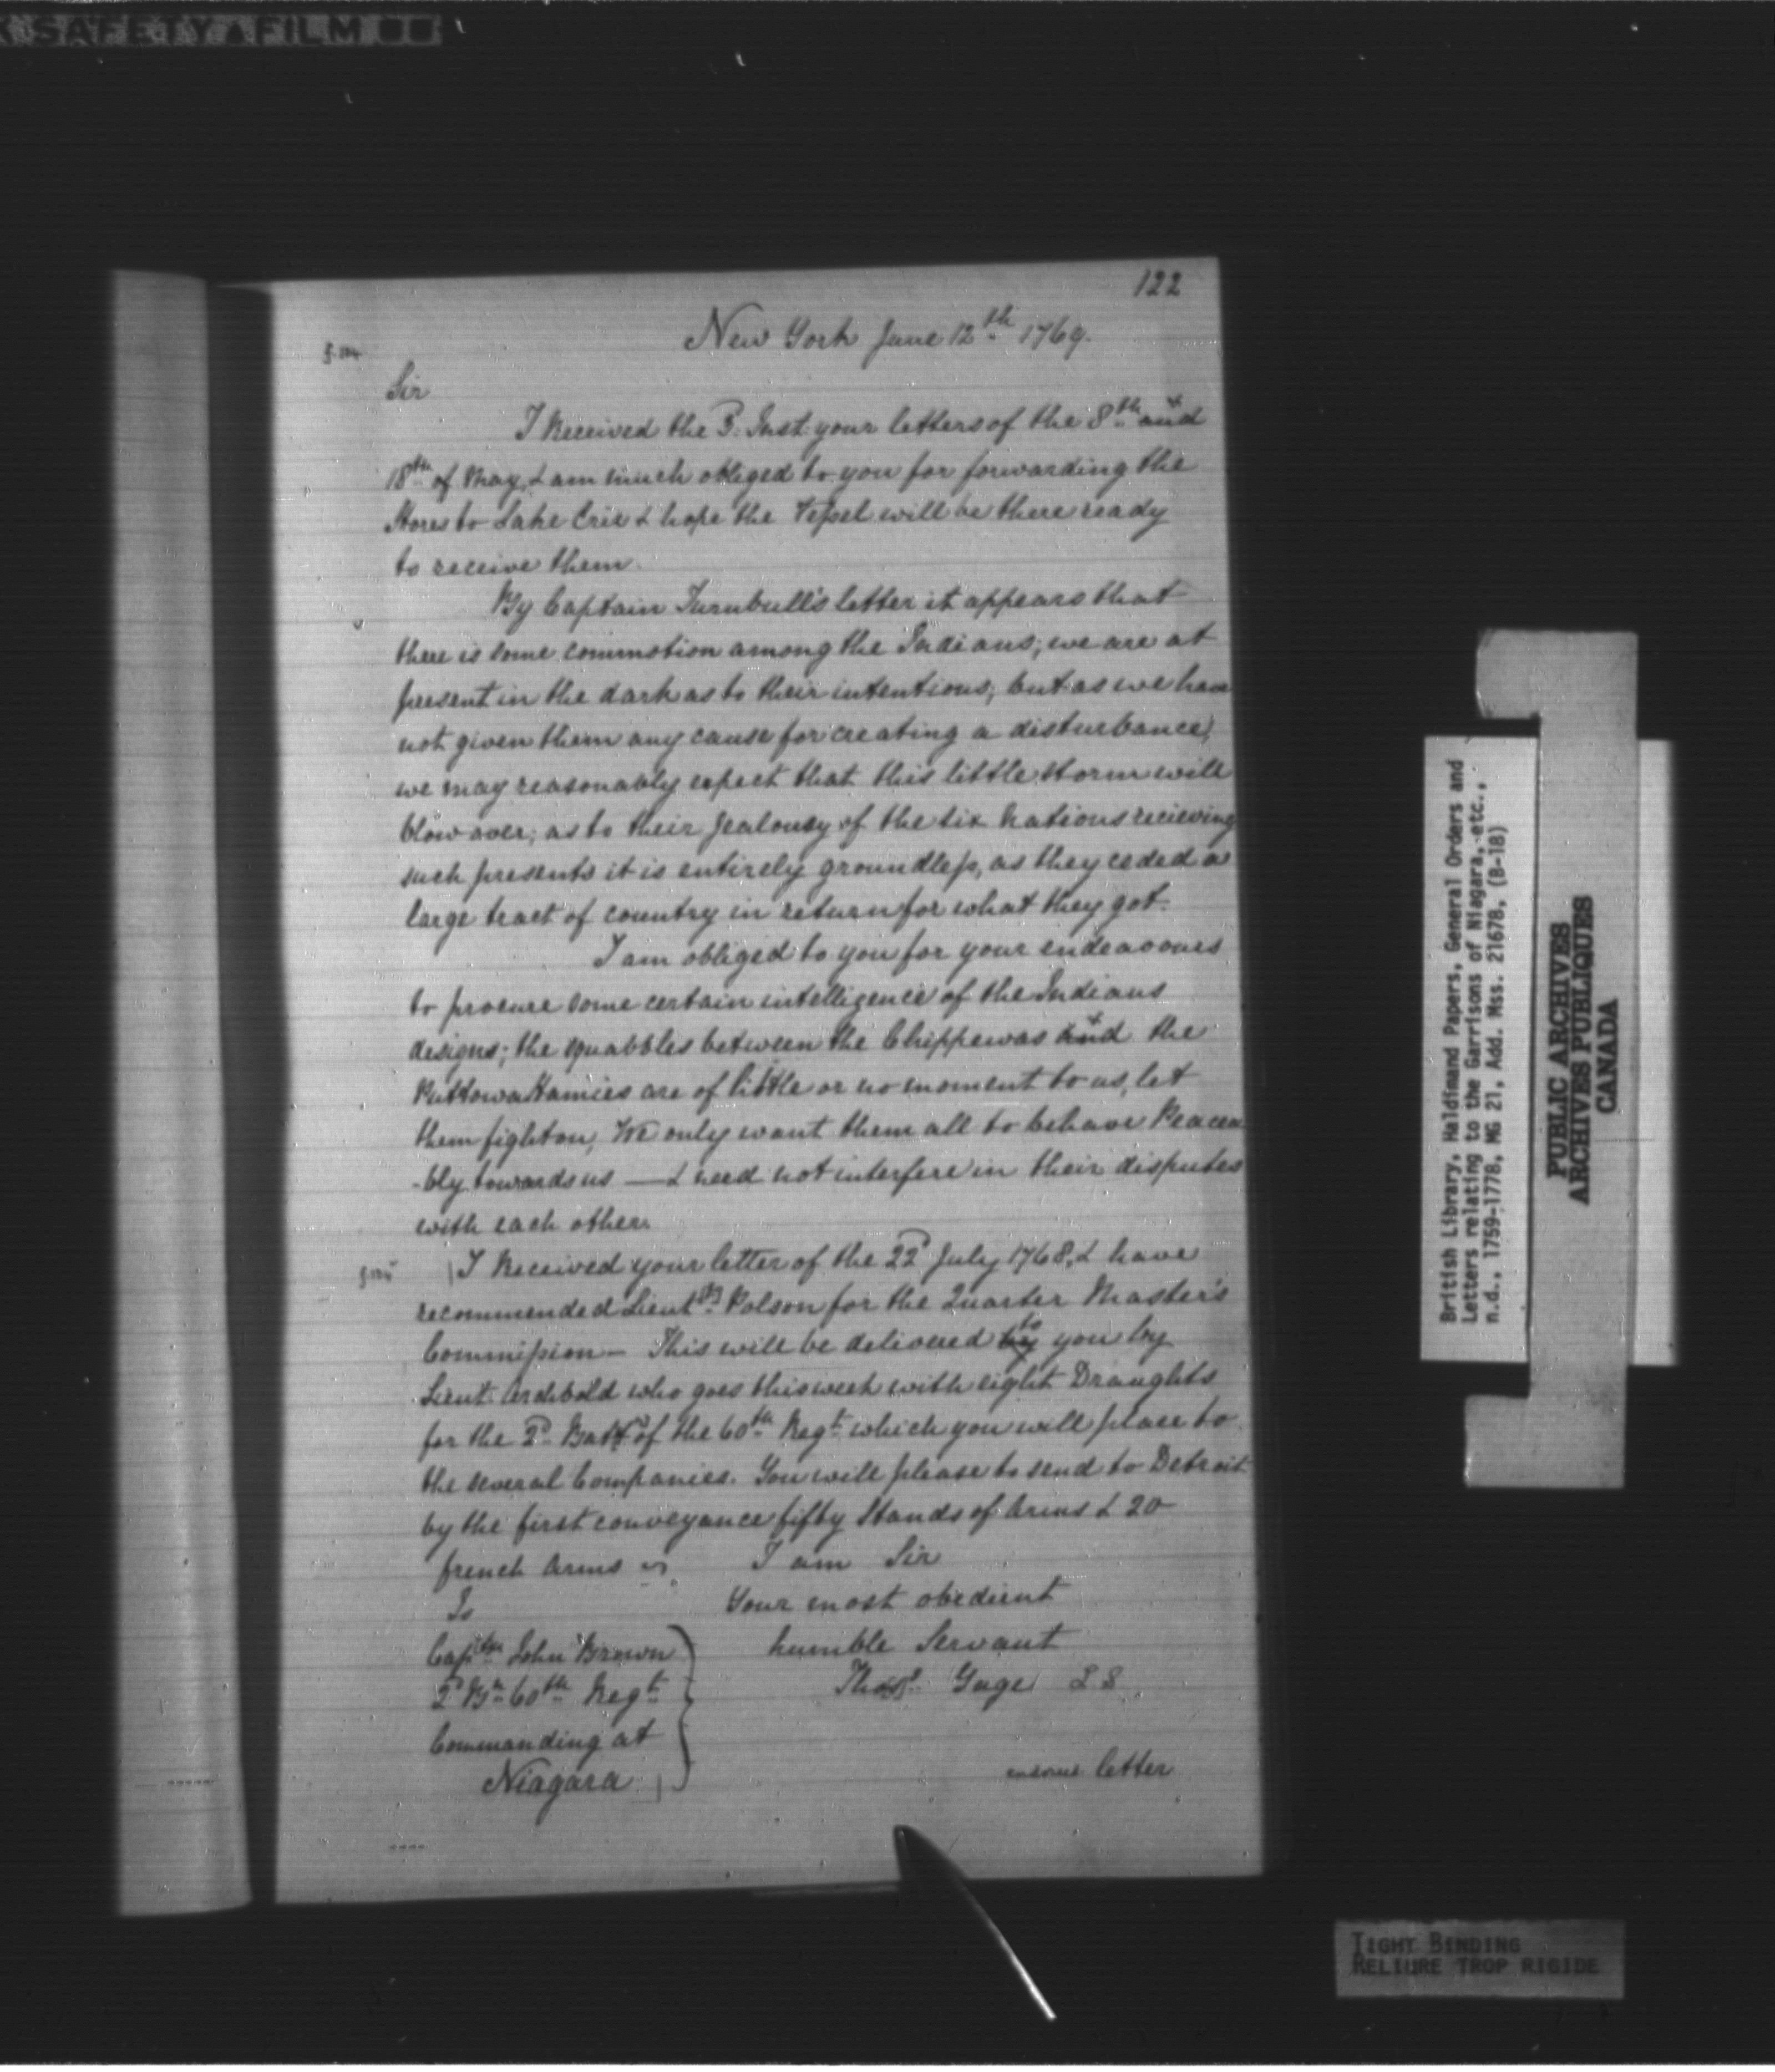 SAFETY FILM
122
New York June 12th 1769.
Sir
I Received the 3. Inst. your letters of the 8th and
18th of May, & am much obliged to you for forwarding the
Stores to Lake Erie & hope the Vessel will be there ready
to receive them.
By Captain Turnbull's letter it appears that
there is some commotion among the Indians; we are at
present in the dark as to their intentions; but as we have
not given them any cause for creating a disturbance,
we may reasonably expect that this little storm will
blow over; as to their Jealousy of the six Nations recieving
such presents it is entirely groundless, as they ceded a
large tract of country in return for what they got.
I am obliged to you for your endeavours
to procure some certain intelligence of the Indians
designs; the squabbles between the Chippewas and the
Puttowattamies are of little or no moment to us, let
them fight on, We only want them all to behave Peacea
-bly towards us — & need not interfere in their disputes
with each other.
I Received your letter of the 22d July 1768, & have
recommended Lieut. Polson for the Quarter Master's
Commission — This will be delivered by to you by
Lieut. Archbold who goes this week with eight Draughts
for the 2d Batt. of the 60th Regt. which you will place to
the several Companies. You will please to send to Detroit
by the first conveyance fifty Stands of Arms & 20
french Arms I am Sir
To Your most obedient
Captn John Brown humble Servant
2d Bn 60th Regt Thos. Gage L S
Commanding at
Niagara letter
British Library, Haldimand Papers, General Orders and
Letters relating to the Garrisons of Niagara, etc.,
n.d., 1759-1778, MG 21, Add. Mss. 21678, (B-18)
PUBLIC ARCHIVES
ARCHIVES PUBLIQUES
CANADA
TIGHT BINDING
RELIURE TROP RIGIDE